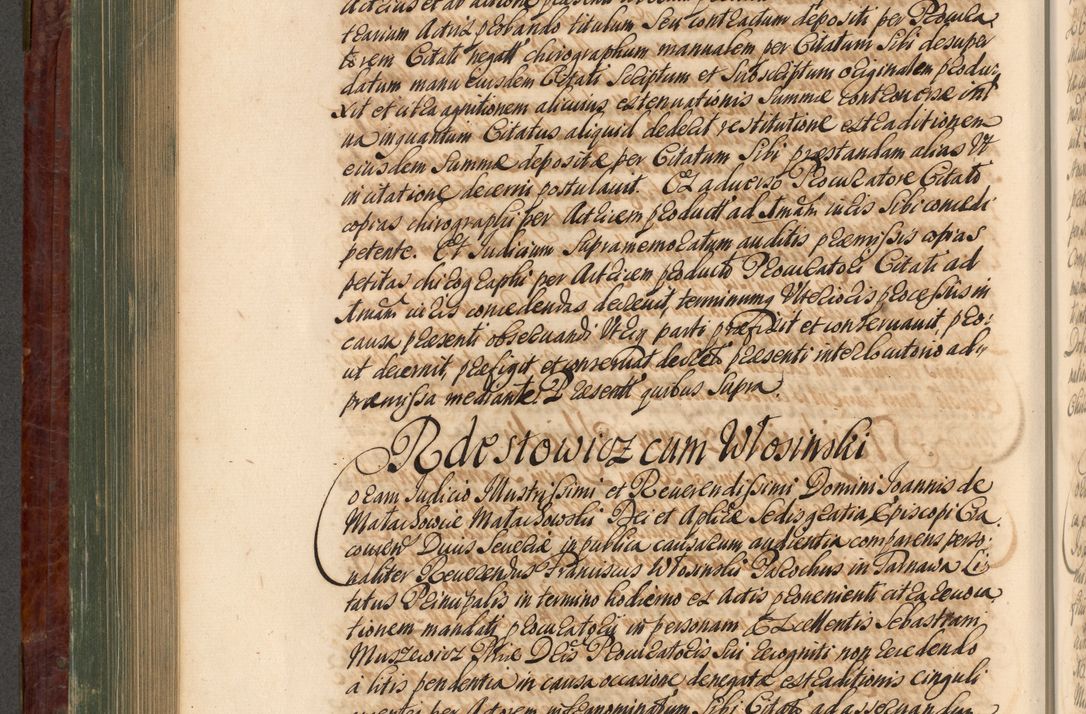 tearium Actus probando titulum Seu contractum depositi per Procura,
torem Citati negatt chirographum manualem per Citatum Sibi desuper
datum manu eiusdem Citati Scriptum et Subscriptum originalem produ:
xit et citra agnitionem alicuius extenuationis Summæ controversæ int
na inquantum Citatus aliquid dederit restitutione extraditionem
eiusdem Summæ depositæ per Citatum Sibi præstandam alias Vt
in citatione decerni postulavit. Ex adverso Procuratore Citati
copias chirographi per Actorem product ad Amām iuris Sibi concedi
petente. Et Iudicium Supramemoratum auditis præmissis copias
petitas chirographi per Actorem producto Procuratori Citati ad
Amām iuris concedendas decrevit, terminumq Vlterioris processus in
causa præsenti observandi Vtriq parti præfixit et conservavit, pro:
ut decernit, præfigit et conservat decreto præsenti interlocutorio ad
præmissa mediante. Præsentt quibus Supra.
Rdestowicz cum Włosinski
oram Iudicio Illustrissimi et Reverendissimi Domini Joannis de
Małachowice Małachowski Dei et Aplicæ Sedis gratia Episcopi Cra,
covien Ducis Severiæ in publica causarum audientia comparens perso,
naliter Reverendus Franciscus Włosinski Parochus in Tarnawa Ci,
tatus Principalis in termino hodierno ex Actis provenienti citra revoca,
tionem mandati procuratorij in personam Excellentis Sebastiani
Muszewicz Procuratoris Sui recogniti non recedendo
à litis pendentia in causa occasione denegatæ extraditionis cinguli
per Actorem Sibi Citato ad asservandum